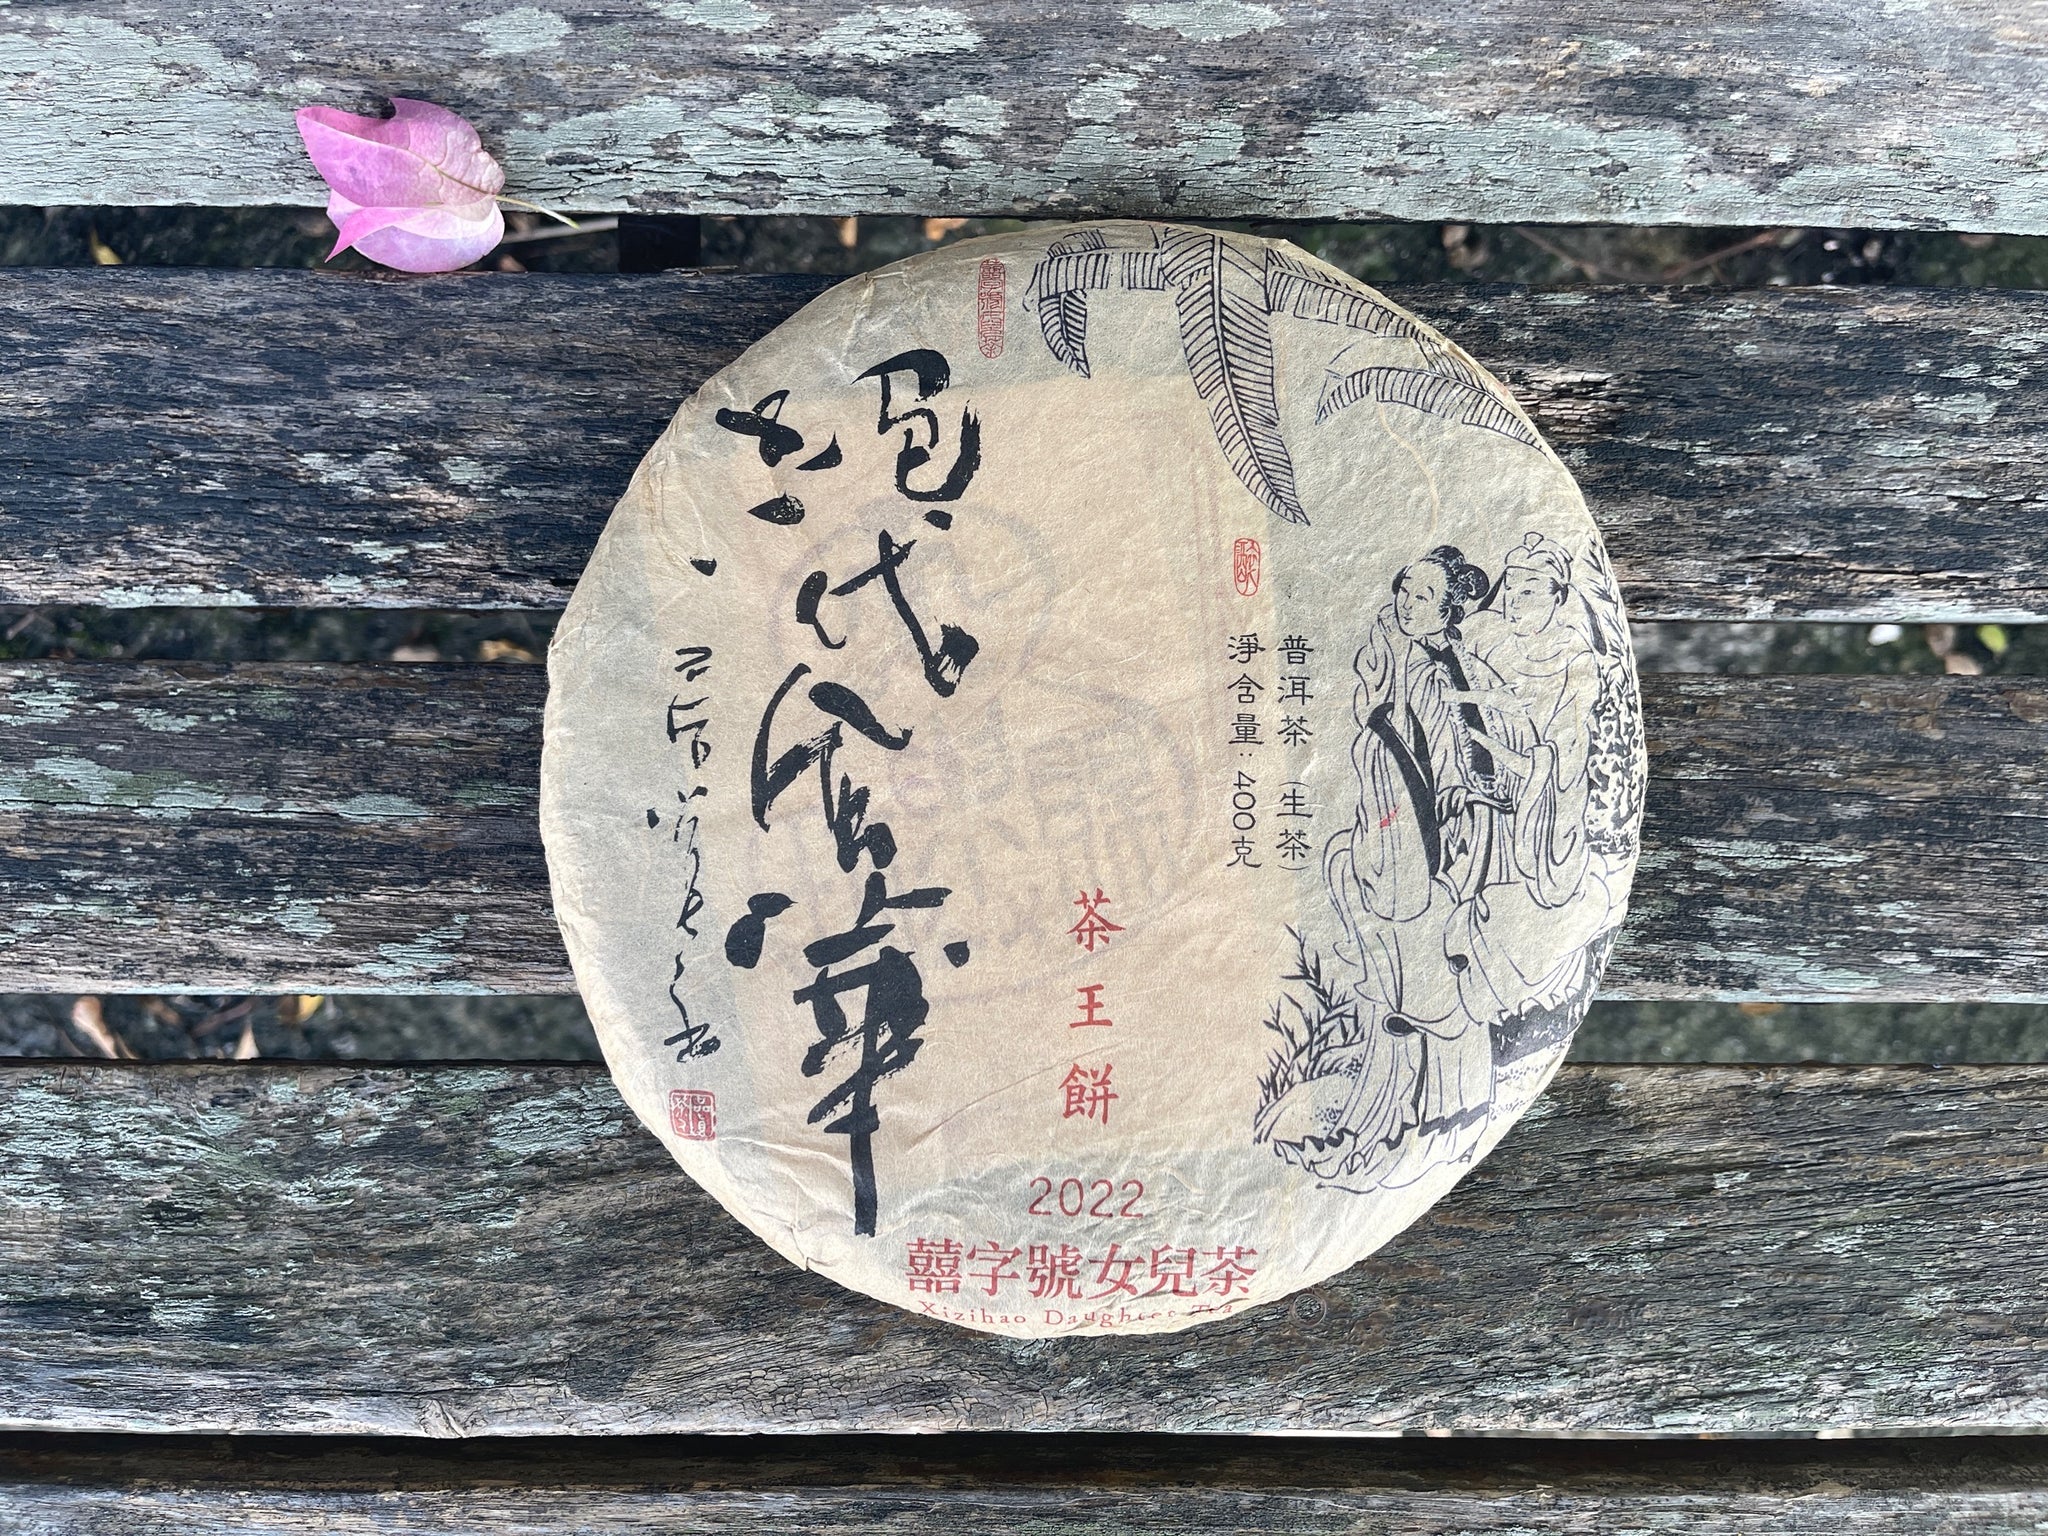 普洱茶（生茶）
淨含量：400克
茶王餅
絕代風華
2022
囍字號女兒茶
Xizihao Daughter's Tea